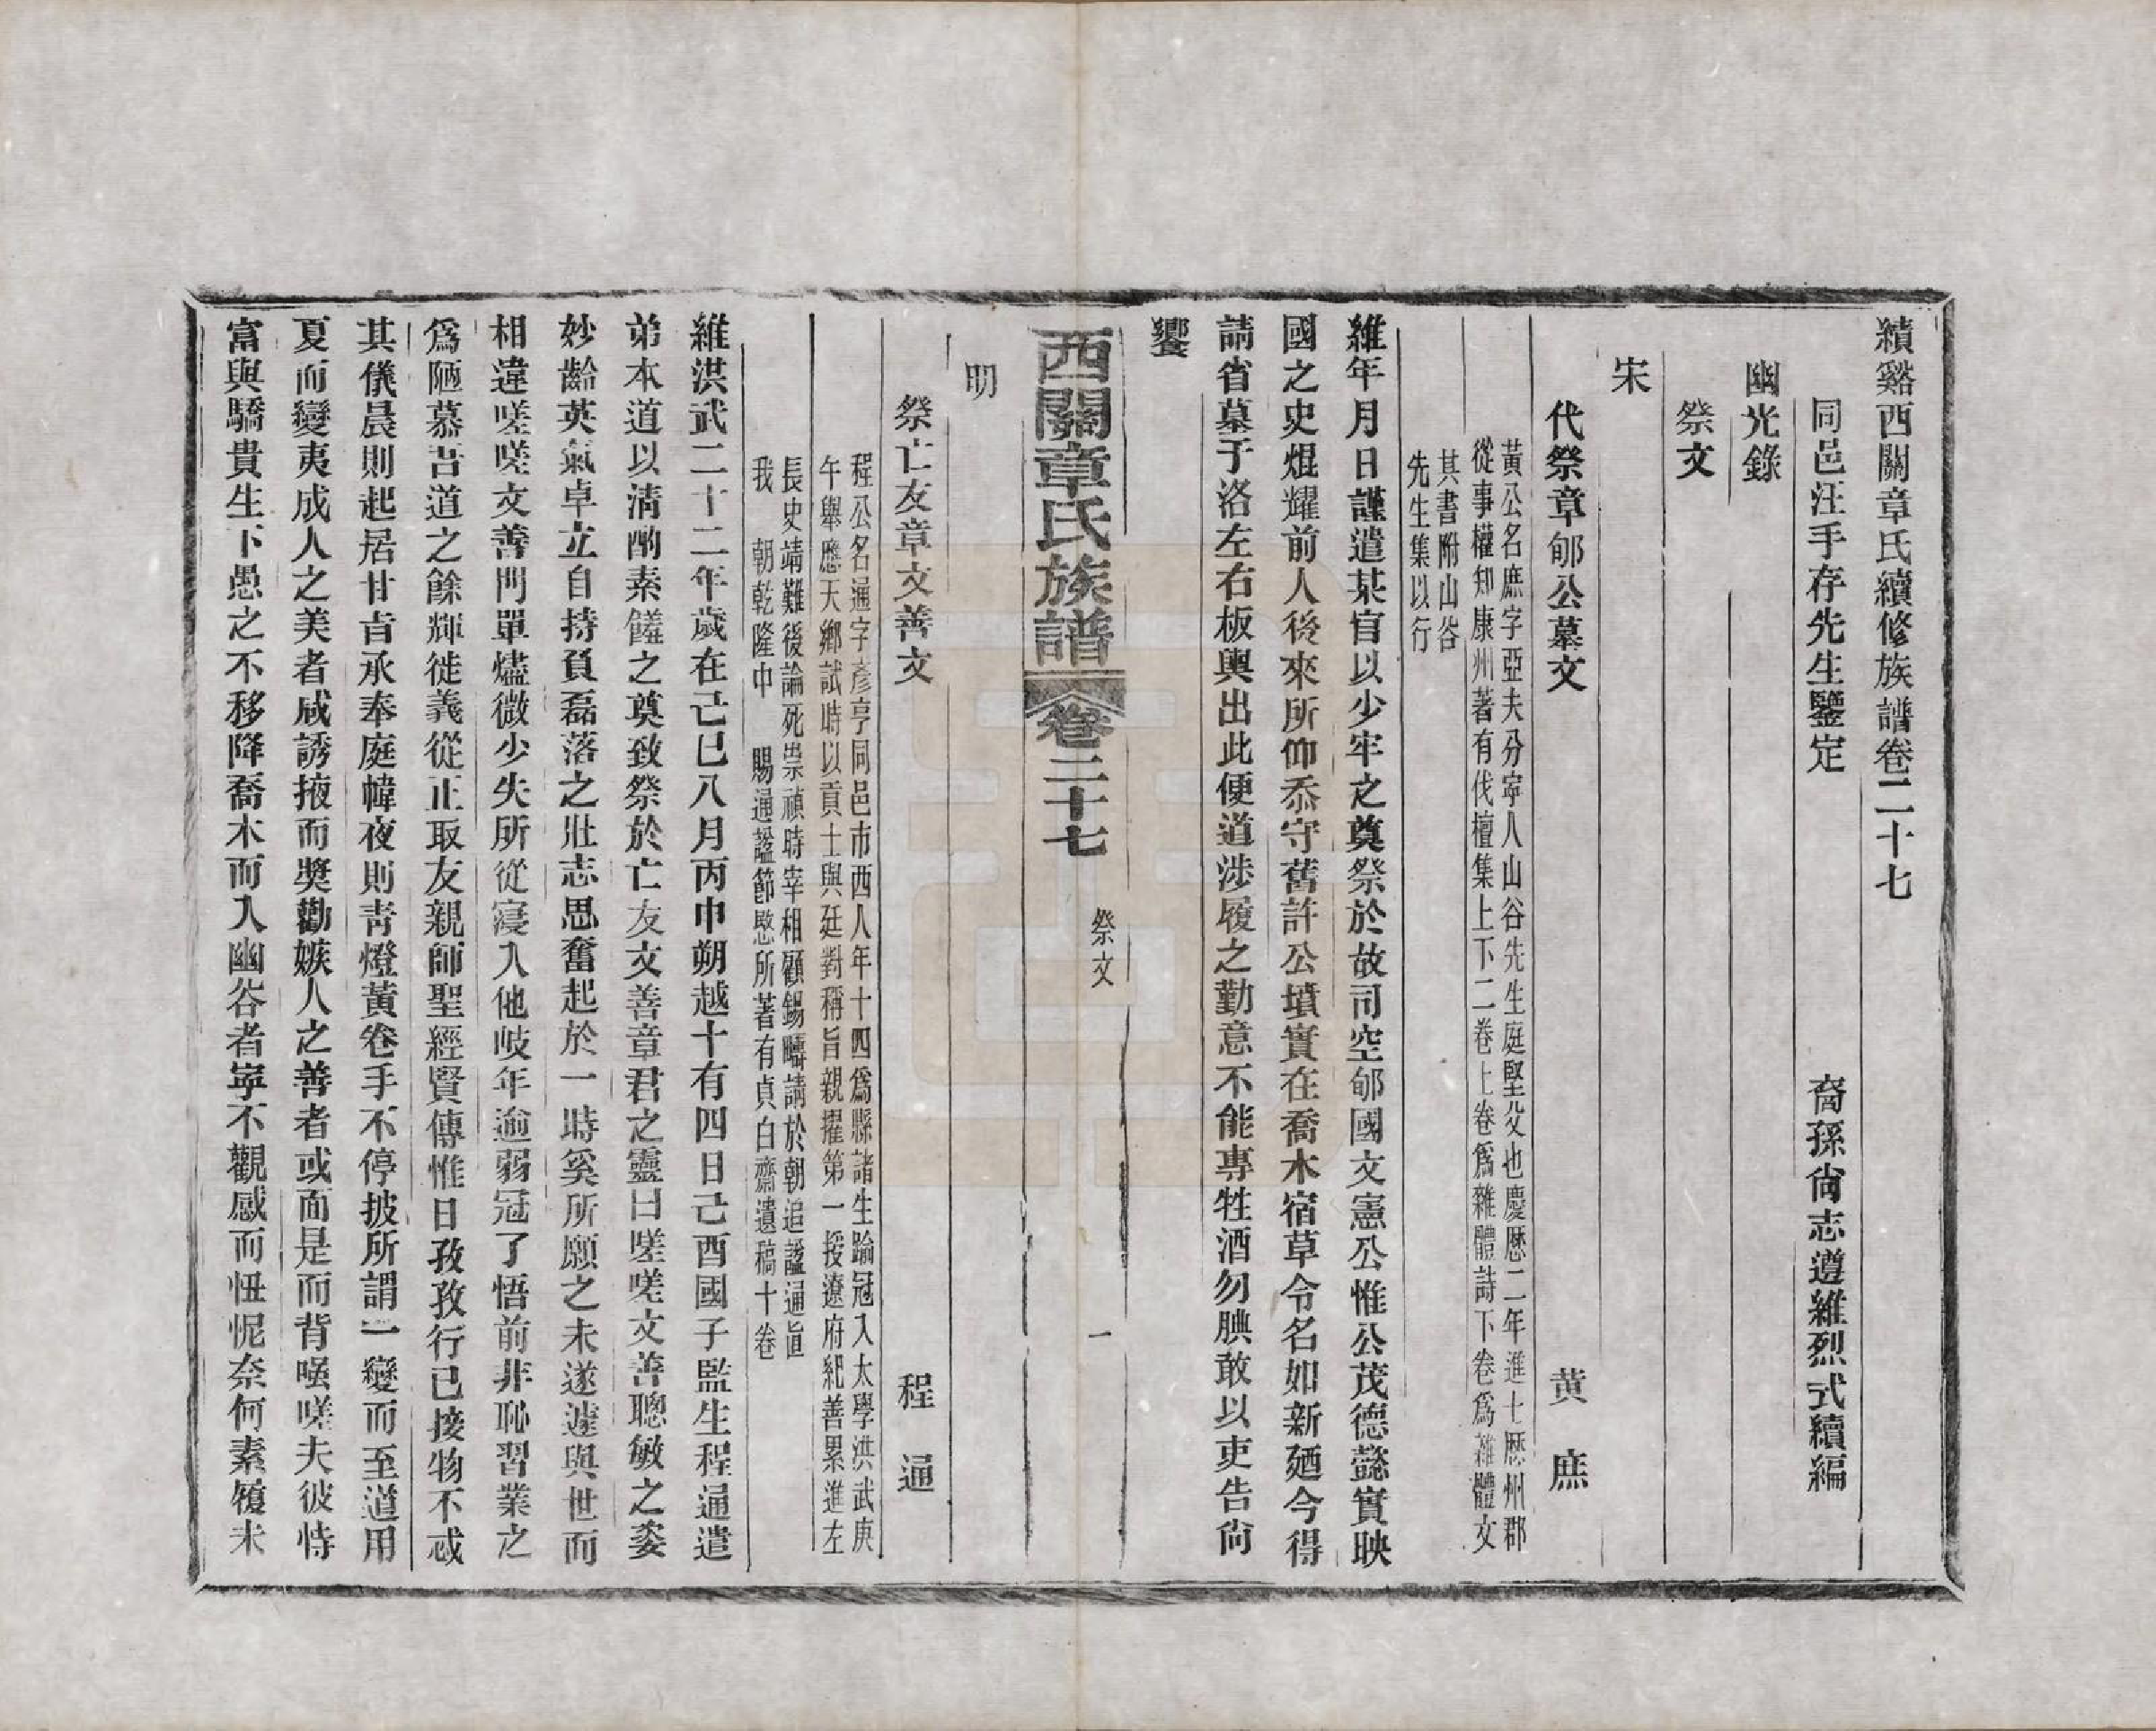 績谿西關章氏續修族譜卷二十七
同邑汪手存先生鑒定　裔孫尙志遵維烈式續編
幽光錄
祭文
宋
代祭章郇公墓文　黃庶
黃公名庶字亞夫分寧人山谷先生庭堅父也慶歷二年進士歷州郡
從事權知康州著有伐檀集上下二卷上卷爲雜體詩下卷爲雜體文
其書附山谷
先生集以行
維年月日謹遣某官以少牢之奠祭於故司空郇國文憲公惟公茂德懿實映
國之史焜耀前人後來所仰忝守舊許公墳實在喬木宿草令名如新廼今得
請省墓于洛左右板輿出此便道涉履之勤意不能專牲酒勿腆敢以吏告尙
饗
西關章氏族譜　卷二十七　祭文　一
明
祭亡友章文善文　程通
程公名通字彥亨同邑市西人年十四爲縣諸生踰冠入太學洪武庚
午舉應天鄉試時以貢士與廷對稱旨親擢第一授遼府紀善累進左
長史靖難後論死崇禎時宰相顧錫疇請於朝追諡通旨
我　朝乾隆中　賜通諡節愍所著有貞白齋遺稿十卷
維洪武二十二年歲在己巳八月丙申朔越十有四日己酉國子監生程通遣
弟本道以清酌素饈之奠致祭於亡友文善章君之靈曰嗟嗟文善聰敏之姿
妙齡英氣卓立自持負磊落之壯志思奮起於一時奚所願之未遂遽與世而
相違嗟嗟文善門單燼微少失所從寖入他岐年逾弱冠了悟前非恥習業之
爲陋慕吾道之餘輝徙義從正取友親師聖經賢傳惟日孜孜行已接物不忒
其儀晨則起居甘旨承奉庭幃夜則靑燈黃卷手不停披所謂一變而至道用
夏而變夷成人之美者咸誘掖而獎勸嫉人之善者或面是而背嗤嗟夫彼恃
富與驕貴生下愚之不移降喬木而入幽谷者寧不觀感而忸怩奈何素履未